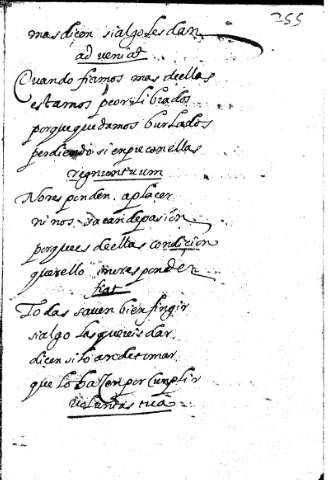 255
mas dicen si algo les dan
ad veniat
Cuando fiamos mas dellas
estamos peor librados
porque quedamos burlados
perdiendo sienpre con ellas
regnum tuum
No responden a placer
ni nos sacan de pasion
porque es dellas condicion
querello no responder
fiat
Todas saven bien fingir
si algo las quereis dar
dicen si lo an de tomar
que lo hazen por cunplir
voluntas tua